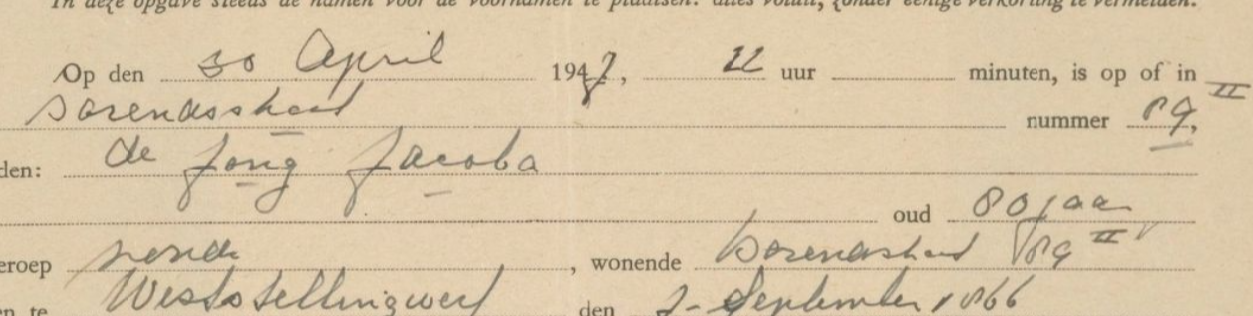 In deze opgave steeds de namen voor de voornamen te plaatsen: alles voluit, zonder eenige verkorting te vermelden.
Op den 30 April 1947, 22 uur minuten, is op of in
Barendsstraat nummer 89 II,
den: de Jong Jacoba
oud 80 jaar
eroep , wonende Barendsstraat 89 II
en te Weststellingwerf den September 1866